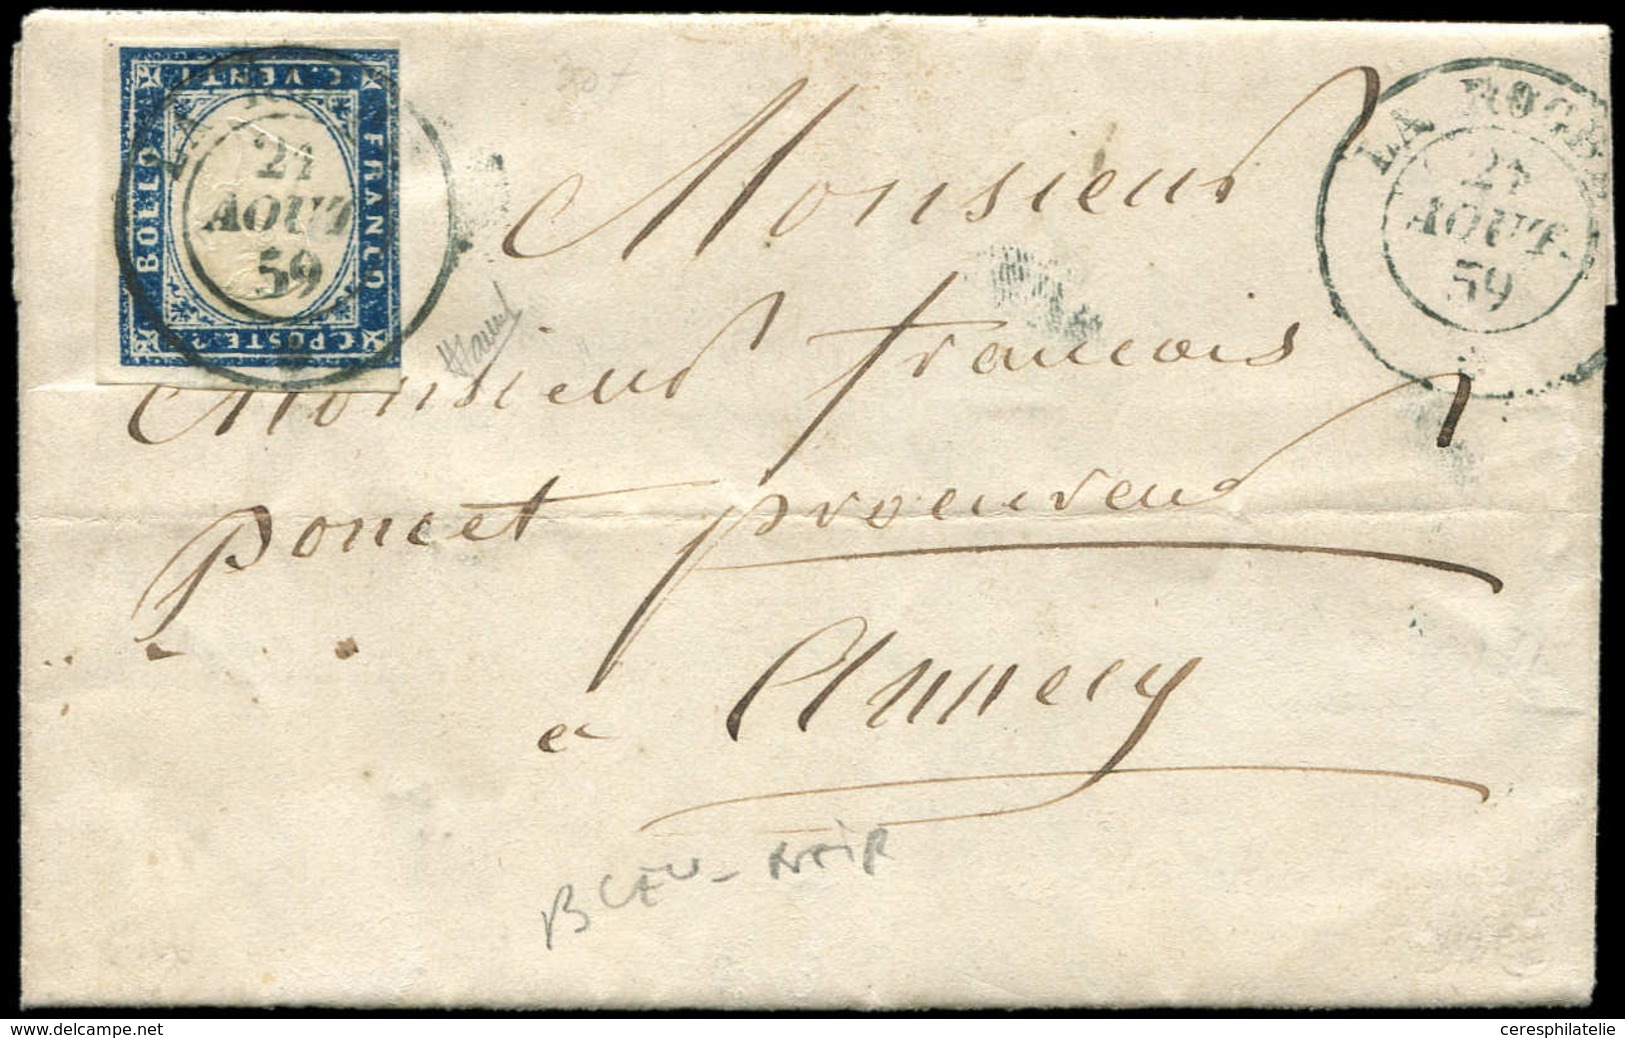 C. VENTI
BOLLO
FRANCO
C POSTE 2
LA RO
21
AOUT
59
LA ROCHE
21
AOUT
59
Monsieur
Monsieur francois
poncet procureur
a Annecy
BLEU-NOIR
www.delcampe.net
ceresphilatelie